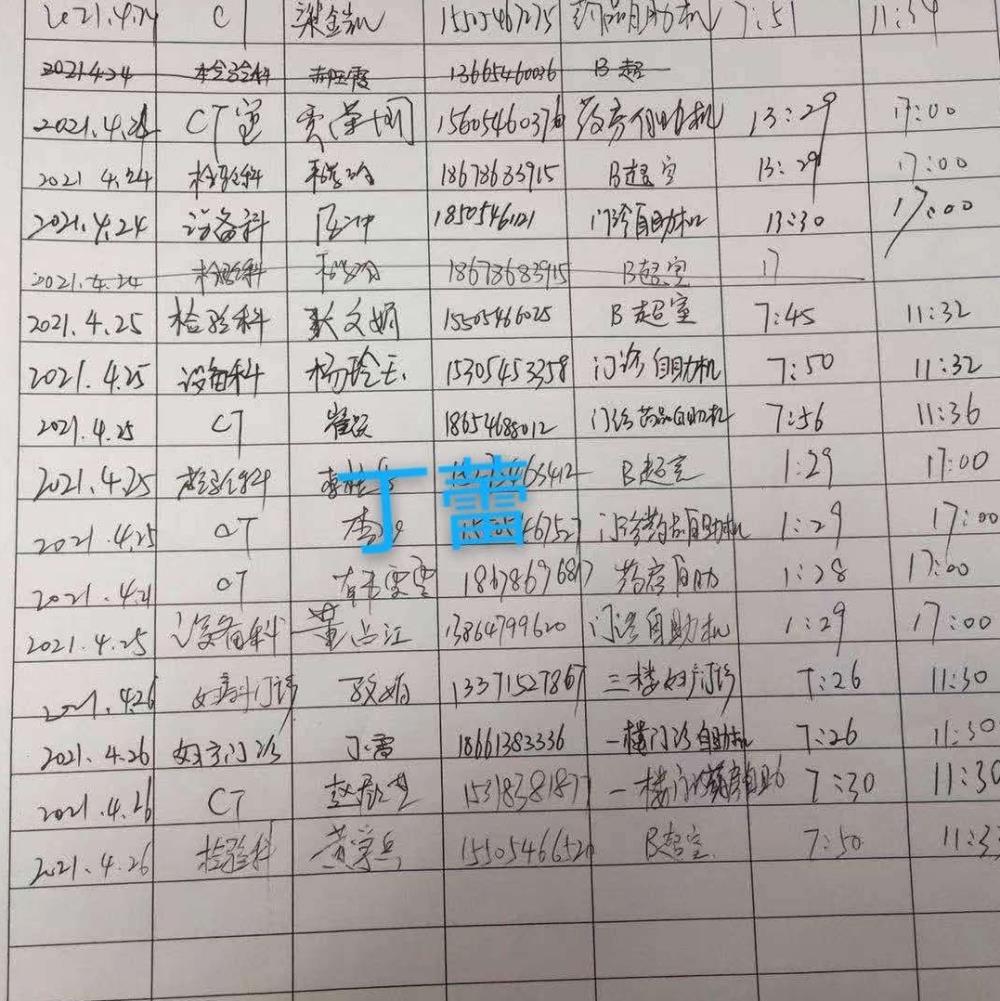 2021.4.24 C 梁金凯 15505467275 药品自助机 7:51 11:34
2021.4.24 检验科 13665460036 B超
2021.4.24 CT室 贾 1560546037 药房自助机 13:29 17:00
2021 4.24 检验科 18678633915 B超室 13:29 17:00
2021.4.24 设备科 1850546121 门诊自助机 13:30 17:00
2021.4.24 检验科 18678683915 B超室 17
2021.4.25 检验科 耿文娟 15505466025 B超室 7:45 11:32
2021.4.25 设备科 杨玲玉 15305453258 门诊自助机 7:50 11:32
2021.4.25 CT 崔 18654688012 门诊药品自助机 7:56 11:36
2021.4.25 检验科 B超室 1:29 17:00
2021.4.25 CT 李 门诊药品自助机 1:29 17:00
2021.4.21 CT 雯雯 18678696817 药房自助 1:28 17:00
2021.4.25 设备科 董占江 13864799620 门诊自助机 1:29 17:00
2021.4.26 妇科门诊 13371527867 三楼妇门诊 7:26 11:30
2021.4.26 妇产门诊 丁雷 18661383336 一楼门诊自助机 7:26 11:30
2021.4.26 CT 赵 15318381877 一楼门诊药房自助 7:30 11:30
2021.4.26 检验科 黄学兵 15505466520 B超室 7:50 11:3
丁蕾